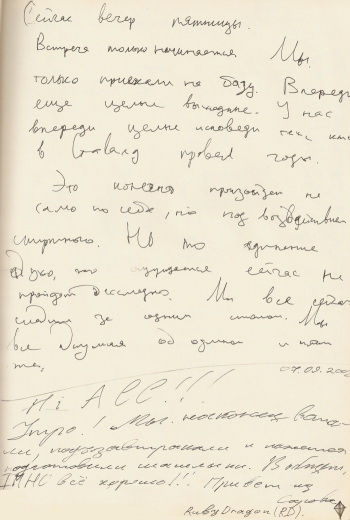 Сейчас вечер пятницы.
Встреча только начинается Мы
только приехали на базу. Впереди
еще целые выходные. У нас
впереди целые исповеди тех, кто
в провел годы.
Это конечно произойдет не
само по себе, но под воздействием
спиртного. Но то единение
духа, что ощущается сейчас не
пройдет бесследно. Мы все сейчас
сидим за одним столом. Мы
все думаем об одном и том
же.
07.09.200
Hi All!!!
Утро! Мы наконец
ли, подзавтракали и
подготовили шашлыки. В общем,
ИМНО всё хорошо!!! Привет из
RubyDragon(RD).